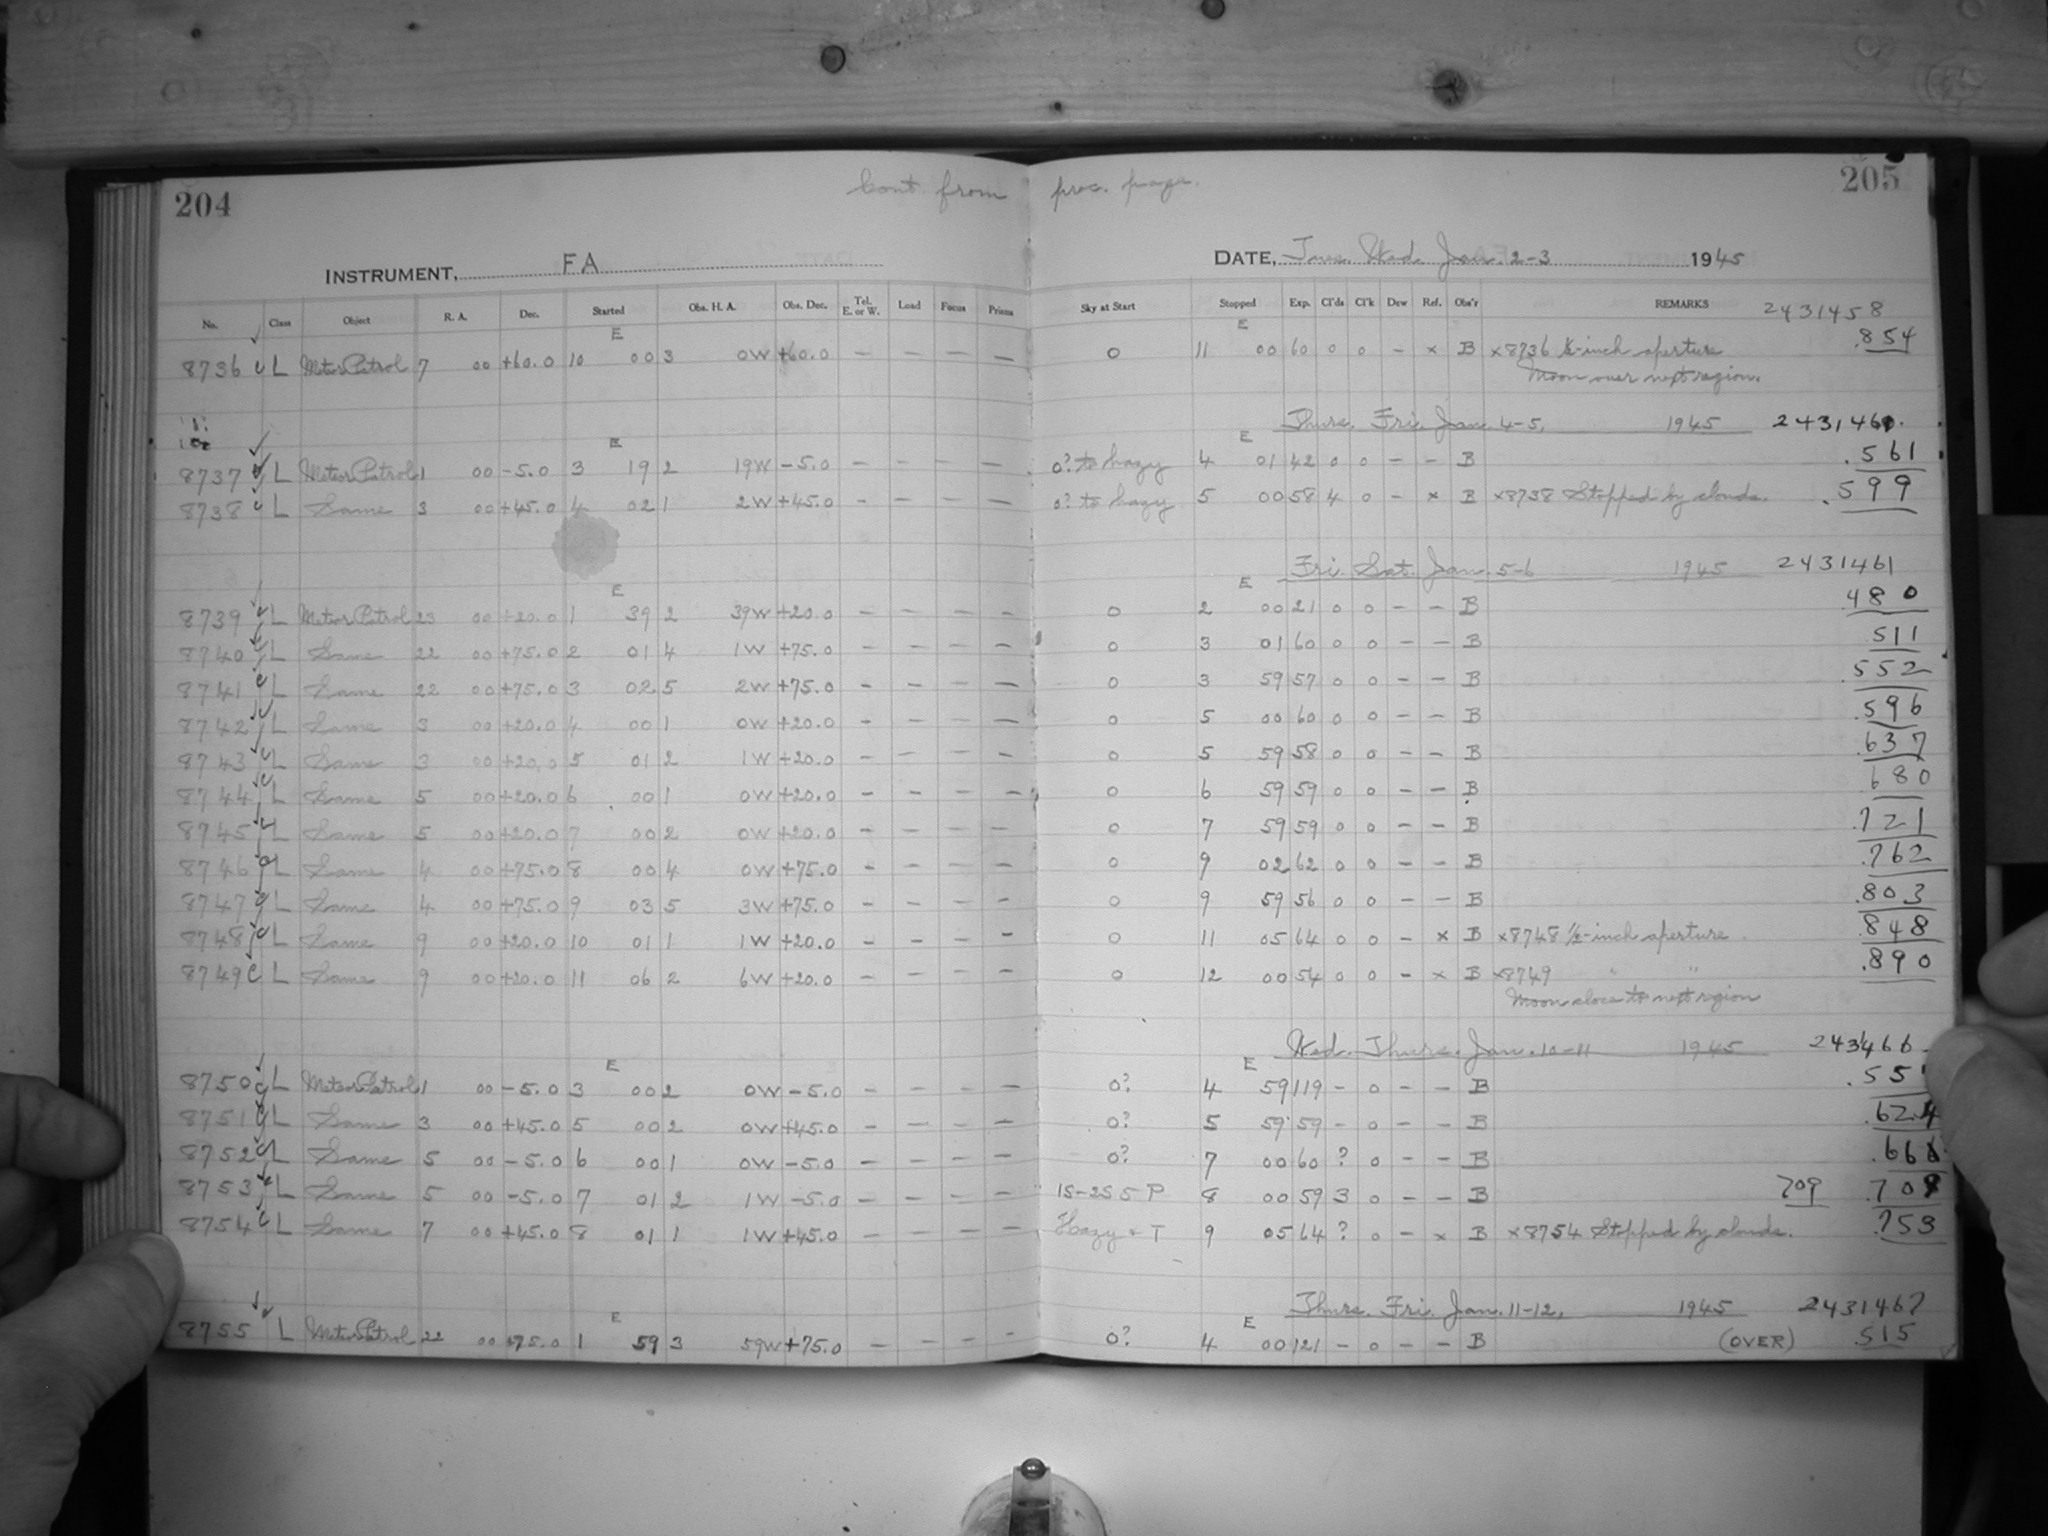 204 Cont from prec. page. 205
INSTRUMENT, FA DATE, Tues. Wed. Jan. 2-3 1945
No. Class Object R. A. Dec. Started Obs. H. A. Obs. Dec. Tel. E. or W. Load Focus Prisms Sky at Start Stopped Exp. Cl'ds Cl'k Dew Ref. Obs'r REMARKS 2431458
E E
8736 L Meteor Patrol 7 00 +60.0 10 00 3 0W +60.0 – – – – 0 11 00 60 0 0 – x B x8736 ½-inch aperture .854
Moon over next region.
Thurs. Fri. Jan. 4-5, 1945 2431460.
E E
8737 L Meteor Patrol 1 00 -5.0 3 19 2 19W -5.0 – – – – 0? to hazy 4 01 42 0 0 – – B .561
8738 L Same 3 00 +45.0 4 02 1 2W +45.0 – – – – 0? to hazy 5 00 58 4 0 – x B x8738 Stopped by clouds. .599
Fri. Sat. Jan. 5-6 1945 2431461
E E
8739 L Meteor Patrol 23 00 +20.0 1 39 2 39W +20.0 – – – – 0 2 00 21 0 0 – – B .480
8740 L Same 22 00 +75.0 2 01 4 1W +75.0 – – – – 0 3 01 60 0 0 – – B .511
8741 L Same 22 00 +75.0 3 02 5 2W +75.0 – – – – 0 3 59 57 0 0 – – B .552
8742 L Same 3 00 +20.0 4 00 1 0W +20.0 – – – – 0 5 00 60 0 0 – – B .596
8743 L Same 3 00 +20.0 5 01 2 1W +20.0 – – – – 0 5 59 58 0 0 – – B .637
8744 L Same 5 00 +20.0 6 00 1 0W +20.0 – – – – 0 6 59 59 0 0 – – B .680
8745 L Same 5 00 +20.0 7 00 2 0W +20.0 – – – – 0 7 59 59 0 0 – – B .721
8746 L Same 4 00 +75.0 8 00 4 0W +75.0 – – – – 0 9 02 62 0 0 – – B .762
8747 L Same 4 00 +75.0 9 03 5 3W +75.0 – – – – 0 9 59 56 0 0 – – B .803
8748 L Same 9 00 +20.0 10 01 1 1W +20.0 – – – – 0 11 05 64 0 0 – x B x8748 ½-inch aperture .848
8749 L Same 9 00 +20.0 11 06 2 6W +20.0 – – – – 0 12 00 54 0 0 – x B x8749 " " .890
Moon close to next region
Wed. Thurs. Jan. 10-11 1945 2431466
E E
8750 L Meteor Patrol 1 00 -5.0 3 00 2 0W -5.0 – – – – 0? 4 59 119 – 0 – – B .55
8751 L Same 3 00 +45.0 5 00 2 0W +45.0 – – – – 0? 5 59 59 – 0 – – B .624
8752 L Same 5 00 -5.0 6 00 1 0W -5.0 – – – – 0? 7 00 60 ? 0 – – B .66
8753 L Same 5 00 -5.0 7 01 2 1W -5.0 – – – – 15-25 S P 8 00 59 3 0 – – B 709 .709
8754 L Same 7 00 +45.0 8 01 1 1W +45.0 – – – – Hazy + T 9 05 64 ? 0 – x B x8754 Stopped by clouds. .753
Thurs. Fri. Jan. 11-12, 1945 2431467
E E
8755 L Meteor Patrol 22 00 +75.0 1 59 3 59W +75.0 – – – – 0? 4 00 121 – 0 – – B (OVER) .515